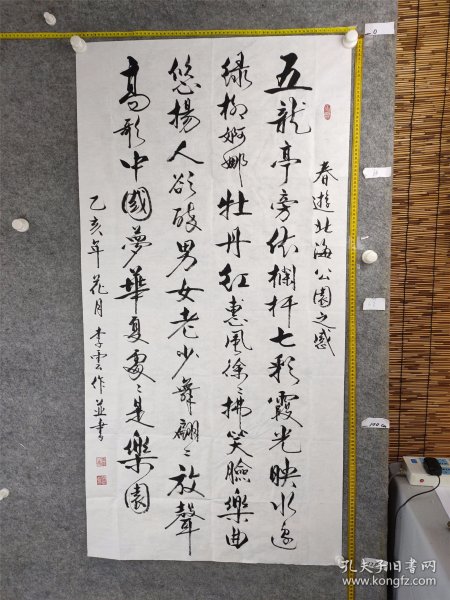 春遊北海公園之感
五龍亭旁依欄杆七彩霞光映水邊
綠柳婀娜牡丹紅惠風徐〻拂笑臉樂曲
悠揚人欲醉男女老少舞翩〻放聲
高歌中國夢華夏處〻是樂園
乙亥年花月李雲作並書
孔夫子旧书网
www.kongfz.com